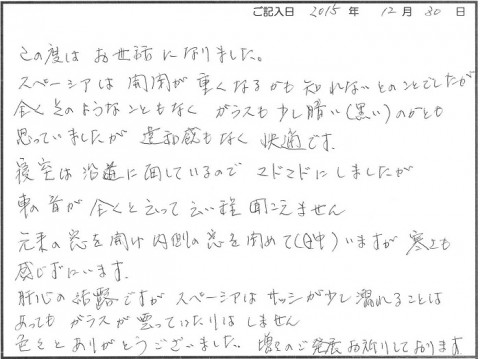 ご記入日 2015 年 12 月 30 日
この度は お世話になりました。
スペーシアは 開閉が 重くなるかも 知れないとのことでしたが
全く そのようなこともなく ガラスも少し暗い(黒い)のかとも
思っていましたが 違和感もなく 快適です。
寝室は 沿道に面しているので マドマドにしましたが
車の音が 全くと云って云い程 聞こえません
元来の窓を開け 内側の窓を閉めて(日中)いますが 寒さも
感じずにいます。
肝心の結露ですが スペーシアは サッシが少し濡れることは
あっても ガラスが曇っていたりは しません
色々と ありがとうございました。 増々のご発展お祈りしております